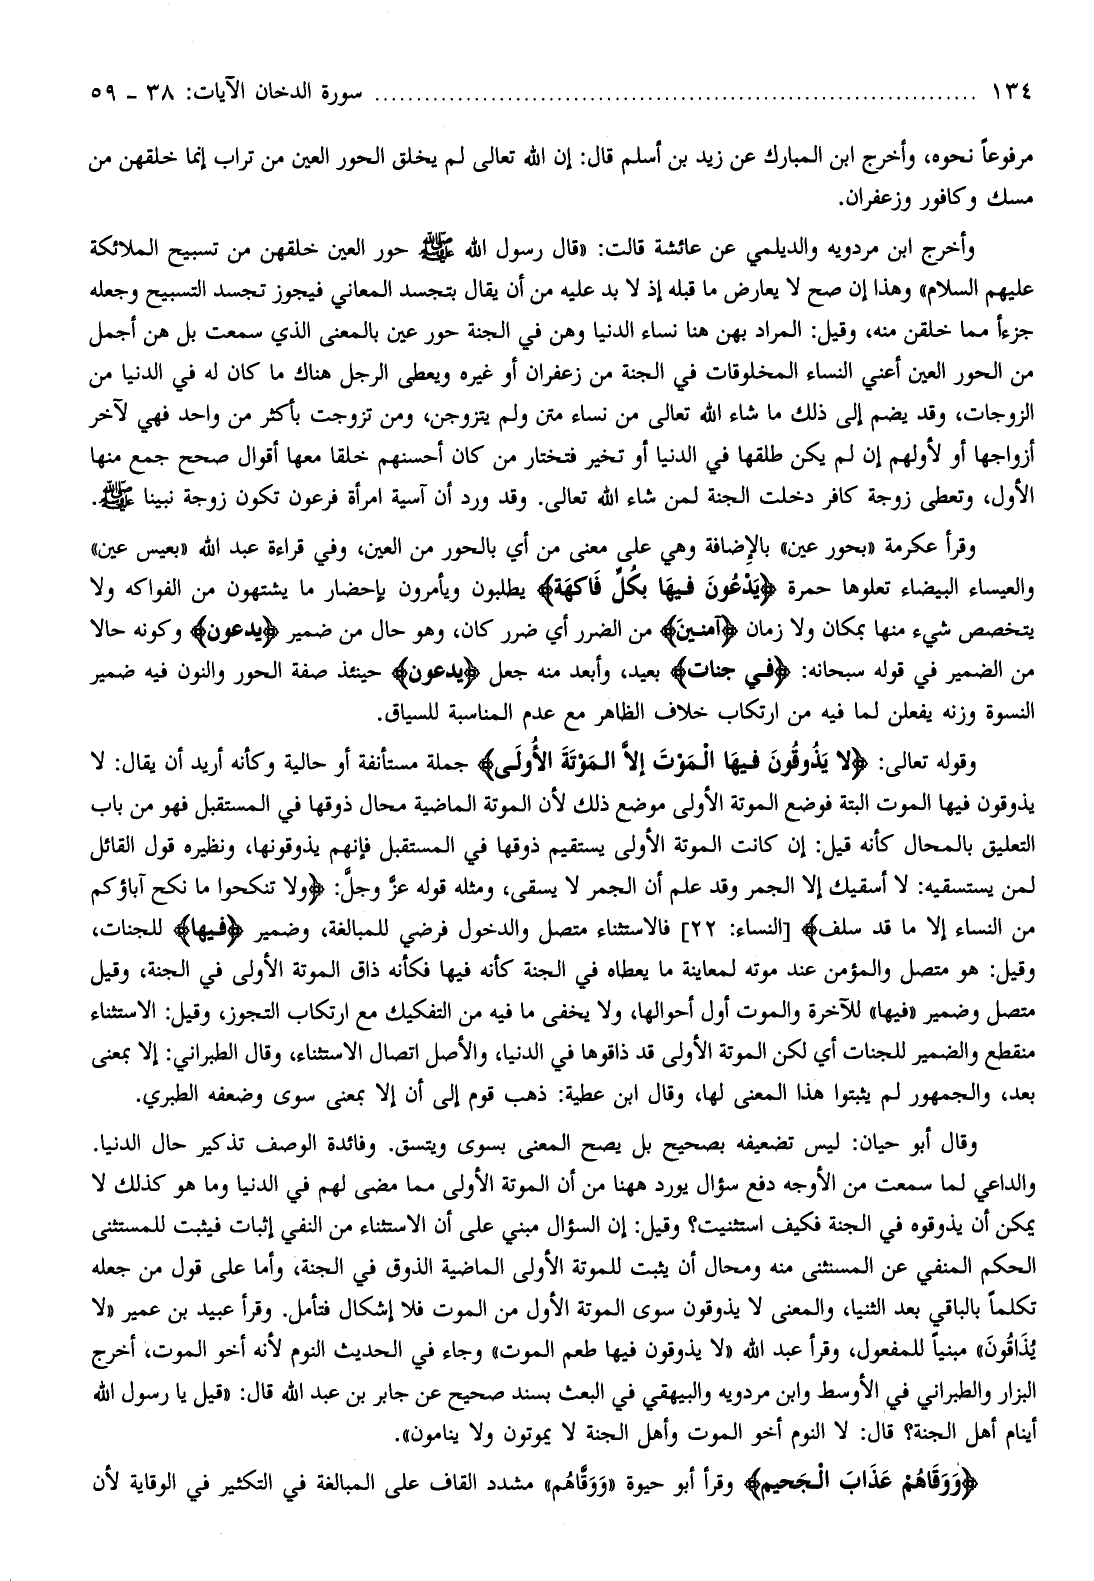 ١٣٤ ........................................................................ سورة الدخان الآيات: ٣٨ ـ ٥٩
مرفوعاً نحوه، وأخرج ابن المبارك عن زيد بن أسلم قال: إن الله تعالى لم يخلق الحور العين من تراب إنما خلقهن من
مسك وكافور وزعفران.
وأخرج ابن مردويه والديلمي عن عائشة قالت: «قال رسول الله ﷺ حور العين خلقهن من تسبيح الملائكة
عليهم السلام» وهذا إن صح لا يعارض ما قبله إذ لا بد عليه من أن يقال بتجسد المعاني فيجوز تجسد التسبيح وجعله
جزءاً مما خلقن منه، وقيل: المراد بهن هنا نساء الدنيا وهن في الجنة حور عين بالمعنى الذي سمعت بل هن أجمل
من الحور العين أعني النساء المخلوقات في الجنة من زعفران أو غيره ويعطى الرجل هناك ما كان له في الدنيا من
الزوجات، وقد يضم إلى ذلك ما شاء الله تعالى من نساء متن ولم يتزوجن، ومن تزوجت بأكثر من واحد فهي لآخر
أزواجها أو لأولهم إن لم يكن طلقها في الدنيا أو تخير فتختار من كان أحسنهم خلقا معها أقوال صحح جمع منها
الأول، وتعطى زوجة كافر دخلت الجنة لمن شاء الله تعالى. وقد ورد أن آسية امرأة فرعون تكون زوجة نبينا ﷺ.
وقرأ عكرمة «بحور عين» بالإِضافة وهي على معنى من أي بالحور من العين، وفي قراءة عبد الله «بعيس عين»
والعيساء البيضاء تعلوها حمرة ﴿يَدْعُونَ فيهَا بكُلِّ فَاكهَة﴾ يطلبون ويأمرون بإحضار ما يشتهون من الفواكه ولا
يتخصص شيء منها بمكان ولا زمان ﴿آمنينَ﴾ من الضرر أي ضرر كان، وهو حال من ضمير ﴿يدعون﴾ وكونه حالا
من الضمير في قوله سبحانه: ﴿في جنات﴾ بعيد، وأبعد منه جعل ﴿يدعون﴾ حينئذ صفة الحور والنون فيه ضمير
النسوة وزنه يفعلن لما فيه من ارتكاب خلاف الظاهر مع عدم المناسبة للسياق.
وقوله تعالى: ﴿لا يَذُوقُونَ فيهَا الْمَوْتَ إلاَّ المَوْتَةَ الأُولَى﴾ جملة مستأنفة أو حالية وكأنه أريد أن يقال: لا
يذوقون فيها الموت البتة فوضع الموتة الأولى موضع ذلك لأن الموتة الماضية محال ذوقها في المستقبل فهو من باب
التعليق بالمحال كأنه قيل: إن كانت الموتة الأولى يستقيم ذوقها في المستقبل فإنهم يذوقونها، ونظيره قول القائل
لمن يستسقيه: لا أسقيك إلا الجمر وقد علم أن الجمر لا يسقى، ومثله قوله عزَّ وجلَّ: ﴿ولا تنكحوا ما نكح آباؤكم
من النساء إلا ما قد سلف﴾ [النساء: ٢٢] فالاستثناء متصل والدخول فرضي للمبالغة، وضمير ﴿فيها﴾ للجنات،
وقيل: هو متصل والمؤمن عند موته لمعاينة ما يعطاه في الجنة كأنه فيها فكأنه ذاق الموتة الأولى في الجنة، وقيل
متصل وضمير «فيها» للآخرة والموت أول أحوالها، ولا يخفى ما فيه من التفكيك مع ارتكاب التجوز، وقيل: الاستثناء
منقطع والضمير للجنات أي لكن الموتة الأولى قد ذاقوها في الدنيا، والأصل اتصال الاستثناء، وقال الطبراني: إلا بمعنى
بعد، والجمهور لم يثبتوا هذا المعنى لها، وقال ابن عطية: ذهب قوم إلى أن إلا بمعنى سوى وضعفه الطبري.
وقال أبو حيان: ليس تضعيفه بصحيح بل يصح المعنى بسوى ويتسق. وفائدة الوصف تذكير حال الدنيا.
والداعي لما سمعت من الأوجه دفع سؤال يورد ههنا من أن الموتة الأولى مما مضى لهم في الدنيا وما هو كذلك لا
يمكن أن يذوقوه في الجنة فكيف استثنيت؟ وقيل: إن السؤال مبني على أن الاستثناء من النفي إثبات فيثبت للمستثنى
الحكم المنفي عن المستثنى منه ومحال أن يثبت للموتة الأولى الماضية الذوق في الجنة، وأما على قول من جعله
تكلماً بالباقي بعد الثنيا، والمعنى لا يذوقون سوى الموتة الأول من الموت فلا إشكال فتأمل. وقرأ عبيد بن عمير «لا
يُذَاقُونَ» مبنياً للمفعول، وقرأ عبد الله «لا يذوقون فيها طعم الموت» وجاء في الحديث النوم لأنه أخو الموت، أخرج
البزار والطبراني في الأوسط وابن مردويه والبيهقي في البعث بسند صحيح عن جابر بن عبد الله قال: «قيل يا رسول الله
أينام أهل الجنة؟ قال: لا النوم أخو الموت وأهل الجنة لا يموتون ولا ينامون».
﴿وَوَقَاهُمْ عَذَابَ الْجَحيم﴾ وقرأ أبو حيوة «وَوَقَّاهُم» مشدد القاف على المبالغة في التكثير في الوقاية لأن